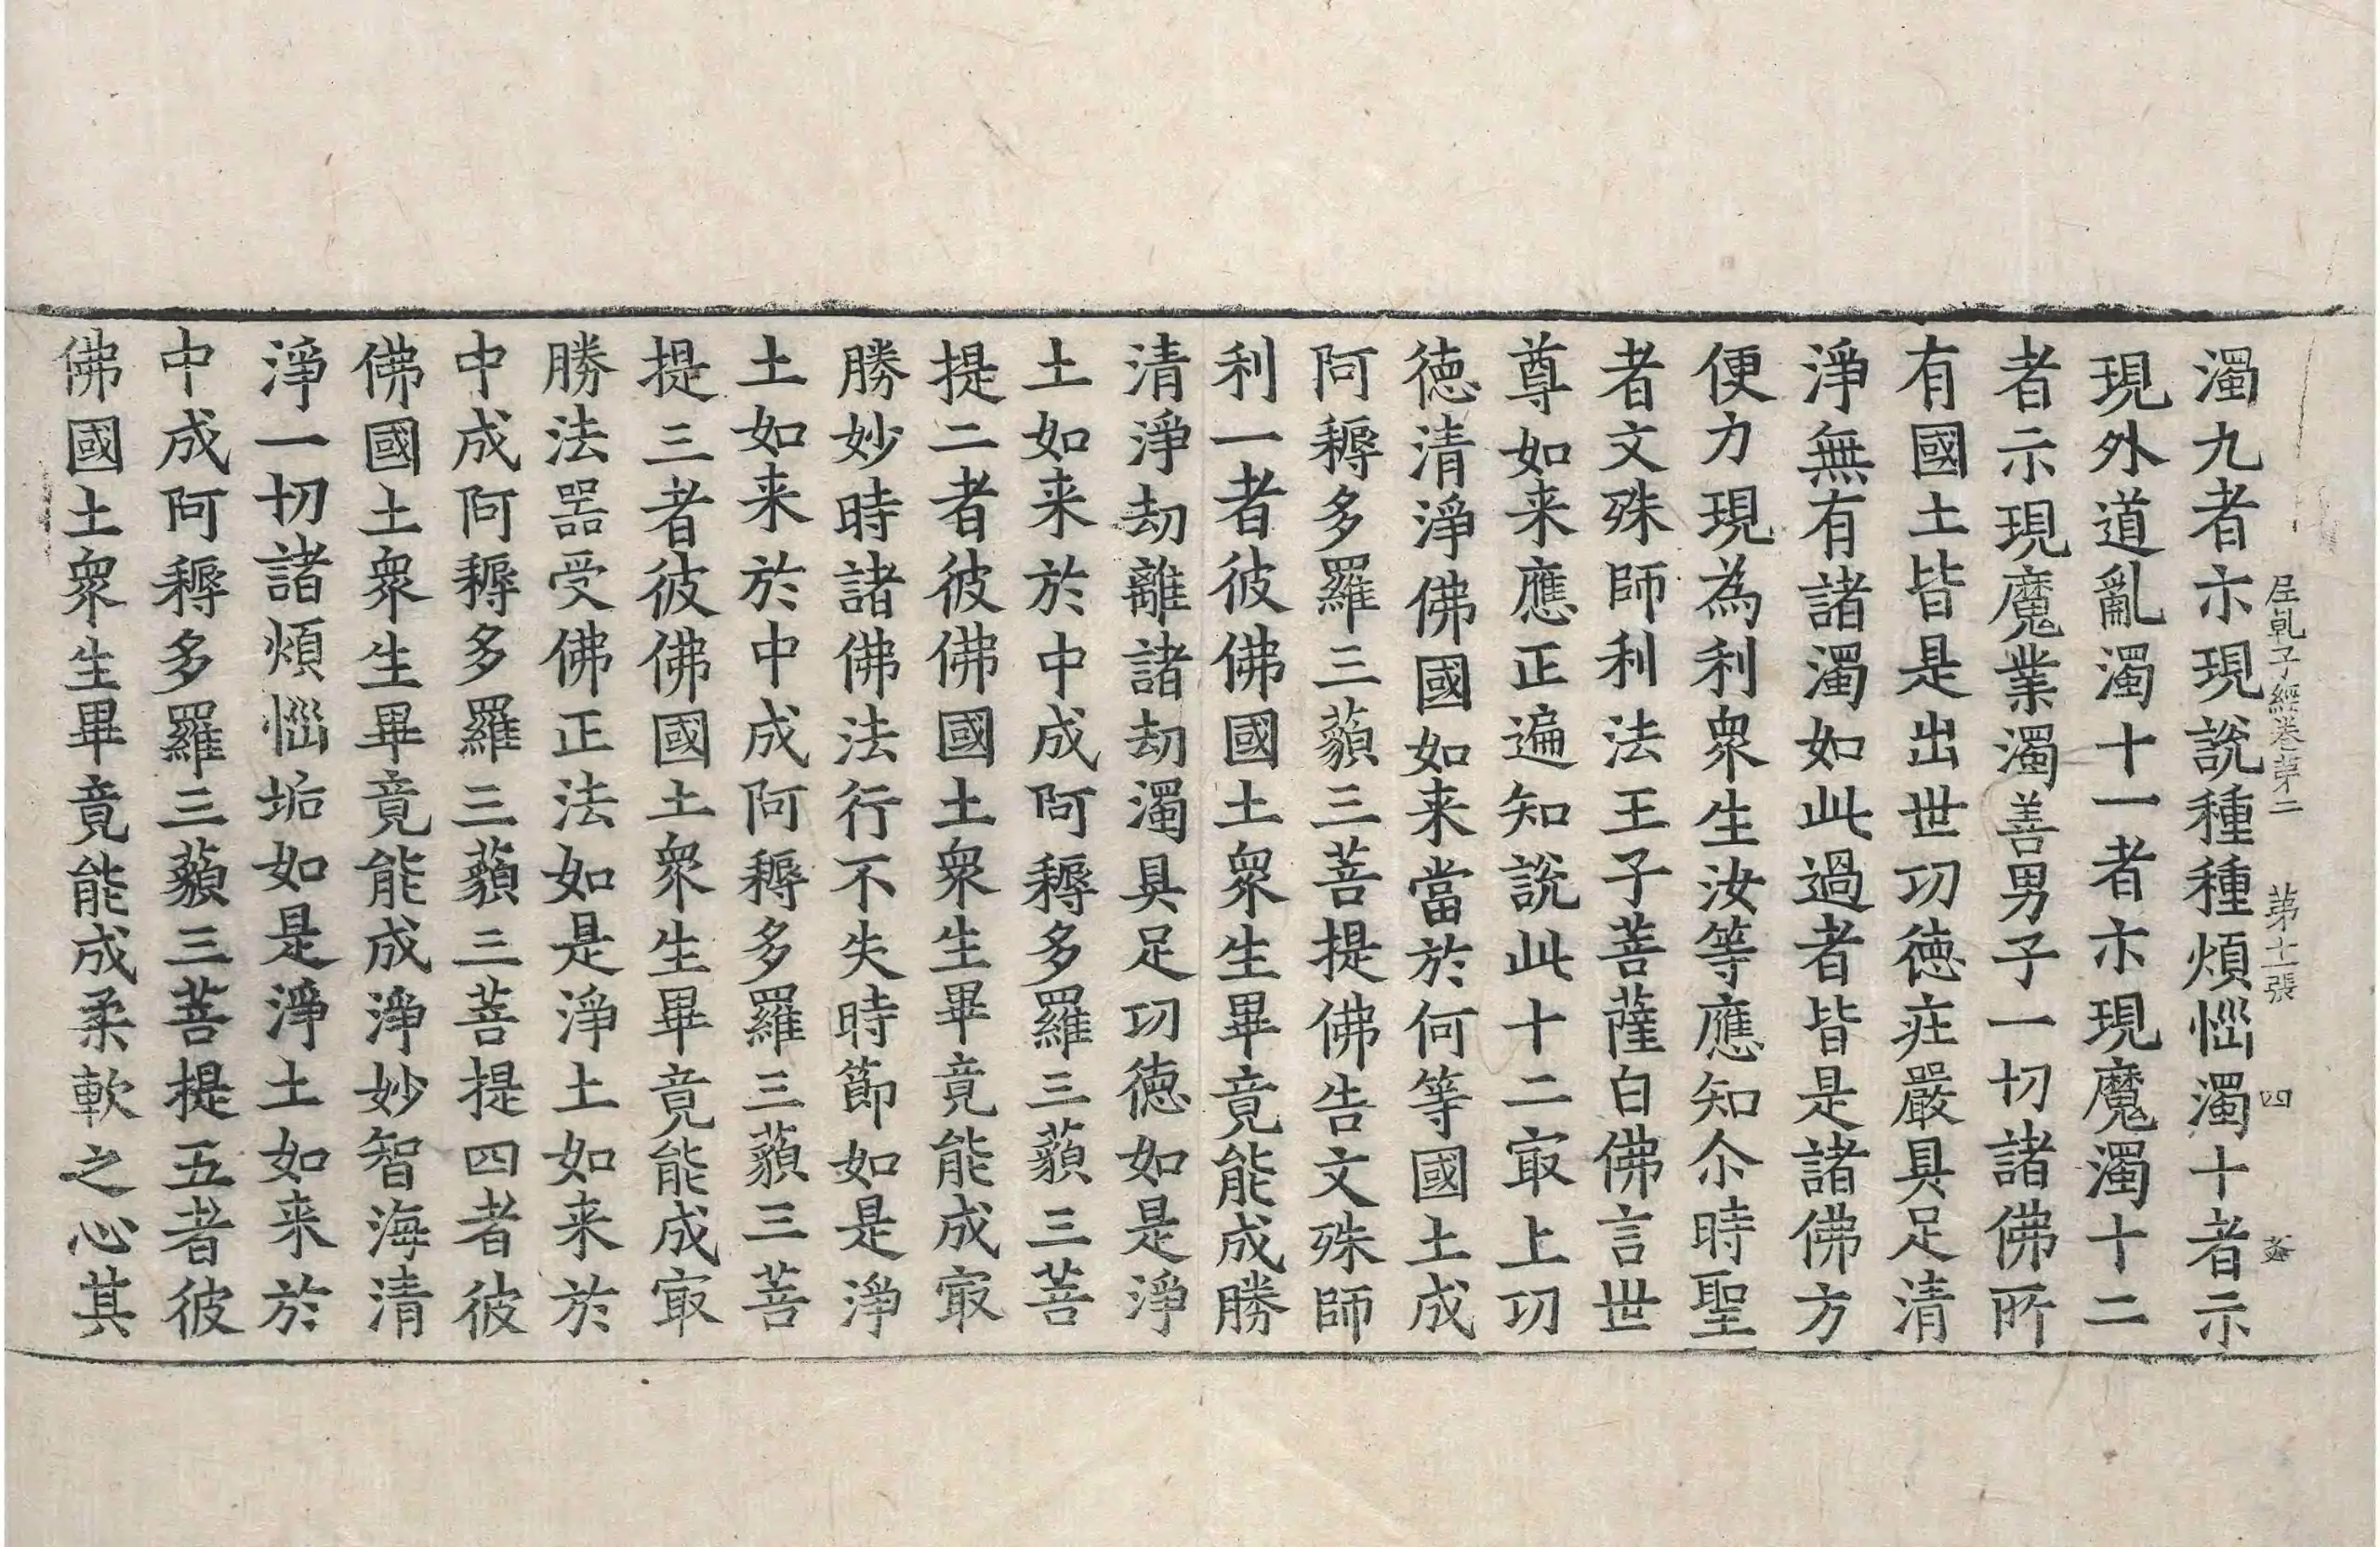 濁九者示現說種種煩惱濁十者示
尼乹子經卷第二　第十一張　四
現外道亂濁十一者示現魔濁十二
者示現魔業濁善男子一切諸佛所
有國土皆是出世功徳庄嚴具足清
淨無有諸濁如此過者皆是諸佛方
便力現為利衆生汝等應知尒時聖
者文殊師利法王子菩薩白佛言世
尊如来應正遍知說此十二㝡上功
徳清淨佛國如来當於何等國土成
阿耨多羅三藐三菩提佛告文殊師
利一者彼佛國土衆生畢竟能成勝
清淨劫離諸劫濁具足功徳如是淨
土如来於中成阿耨多羅三藐三菩
提二者彼佛國土衆生畢竟能成㝡
勝妙時諸佛法行不失時節如是淨
土如来於中成阿耨多羅三藐三菩
提三者彼佛國土衆生畢竟能成㝡
勝法器受佛正法如是淨土如来於
中成阿耨多羅三藐三菩提四者彼
佛國土衆生畢竟能成淨妙智海清
淨一切諸煩惱垢如是淨土如来於
中成阿耨多羅三藐三菩提五者彼
佛國土衆生畢竟能成柔軟之心其